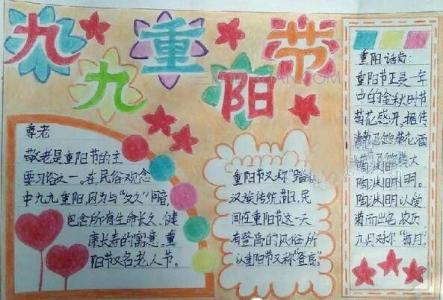 九九重阳节
尊老
敬老是重阳节的主
要习俗之一。在民俗观念
中九九重阳,因为与"久久"同音,
包含有生命长久、健
康长寿的寓意。重
阳节又名老人节。
重阳节又称"踏秋"
汉族传统节日,民
间在重阳节这一天
有登高的风俗,所
以重阳节又称"登高"
重阳话菊:
重阳节正是一年
中的金秋时节
菊花盛开,据传
陶渊明
陶渊明
九月又称"菊月"